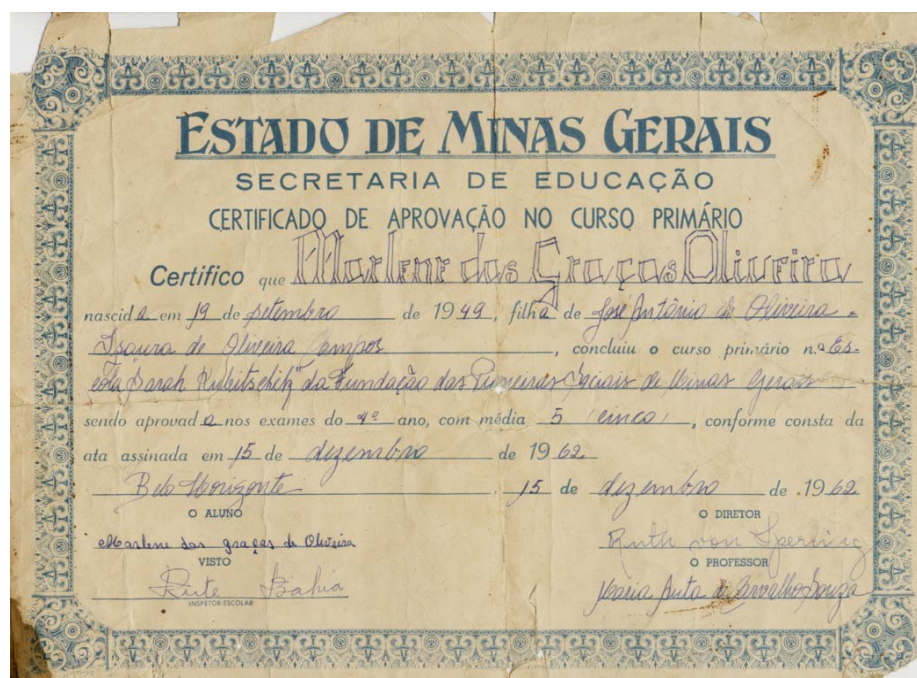 ESTADO DE MINAS GERAIS
SECRETARIA DE EDUCAÇÃO
CERTIFICADO DE APROVAÇÃO NO CURSO PRIMÁRIO
Certifico que Marlene das Graças Oliveira
nascida em 19 de setembro de 1949, filha de José Antônio de Oliveira e
Isaura de Oliveira Campos, concluiu o curso primário na Es-
cola Sarah Kubitschek" da Fundação das Pioneiras Sociais de Minas Gerais
sendo aprovada nos exames do 4º ano, com média 5 (cinco), conforme consta da
ata assinada em 15 de dezembro de 1962
Belo Horizonte, 15 de dezembro de 1962
O ALUNO O DIRETOR
Marlene das graças de Oliveira Ruth von Sperling
VISTO O PROFESSOR
Rute Bahia Maria Auta de Carvalho Souza
INSPETOR-ESCOLAR